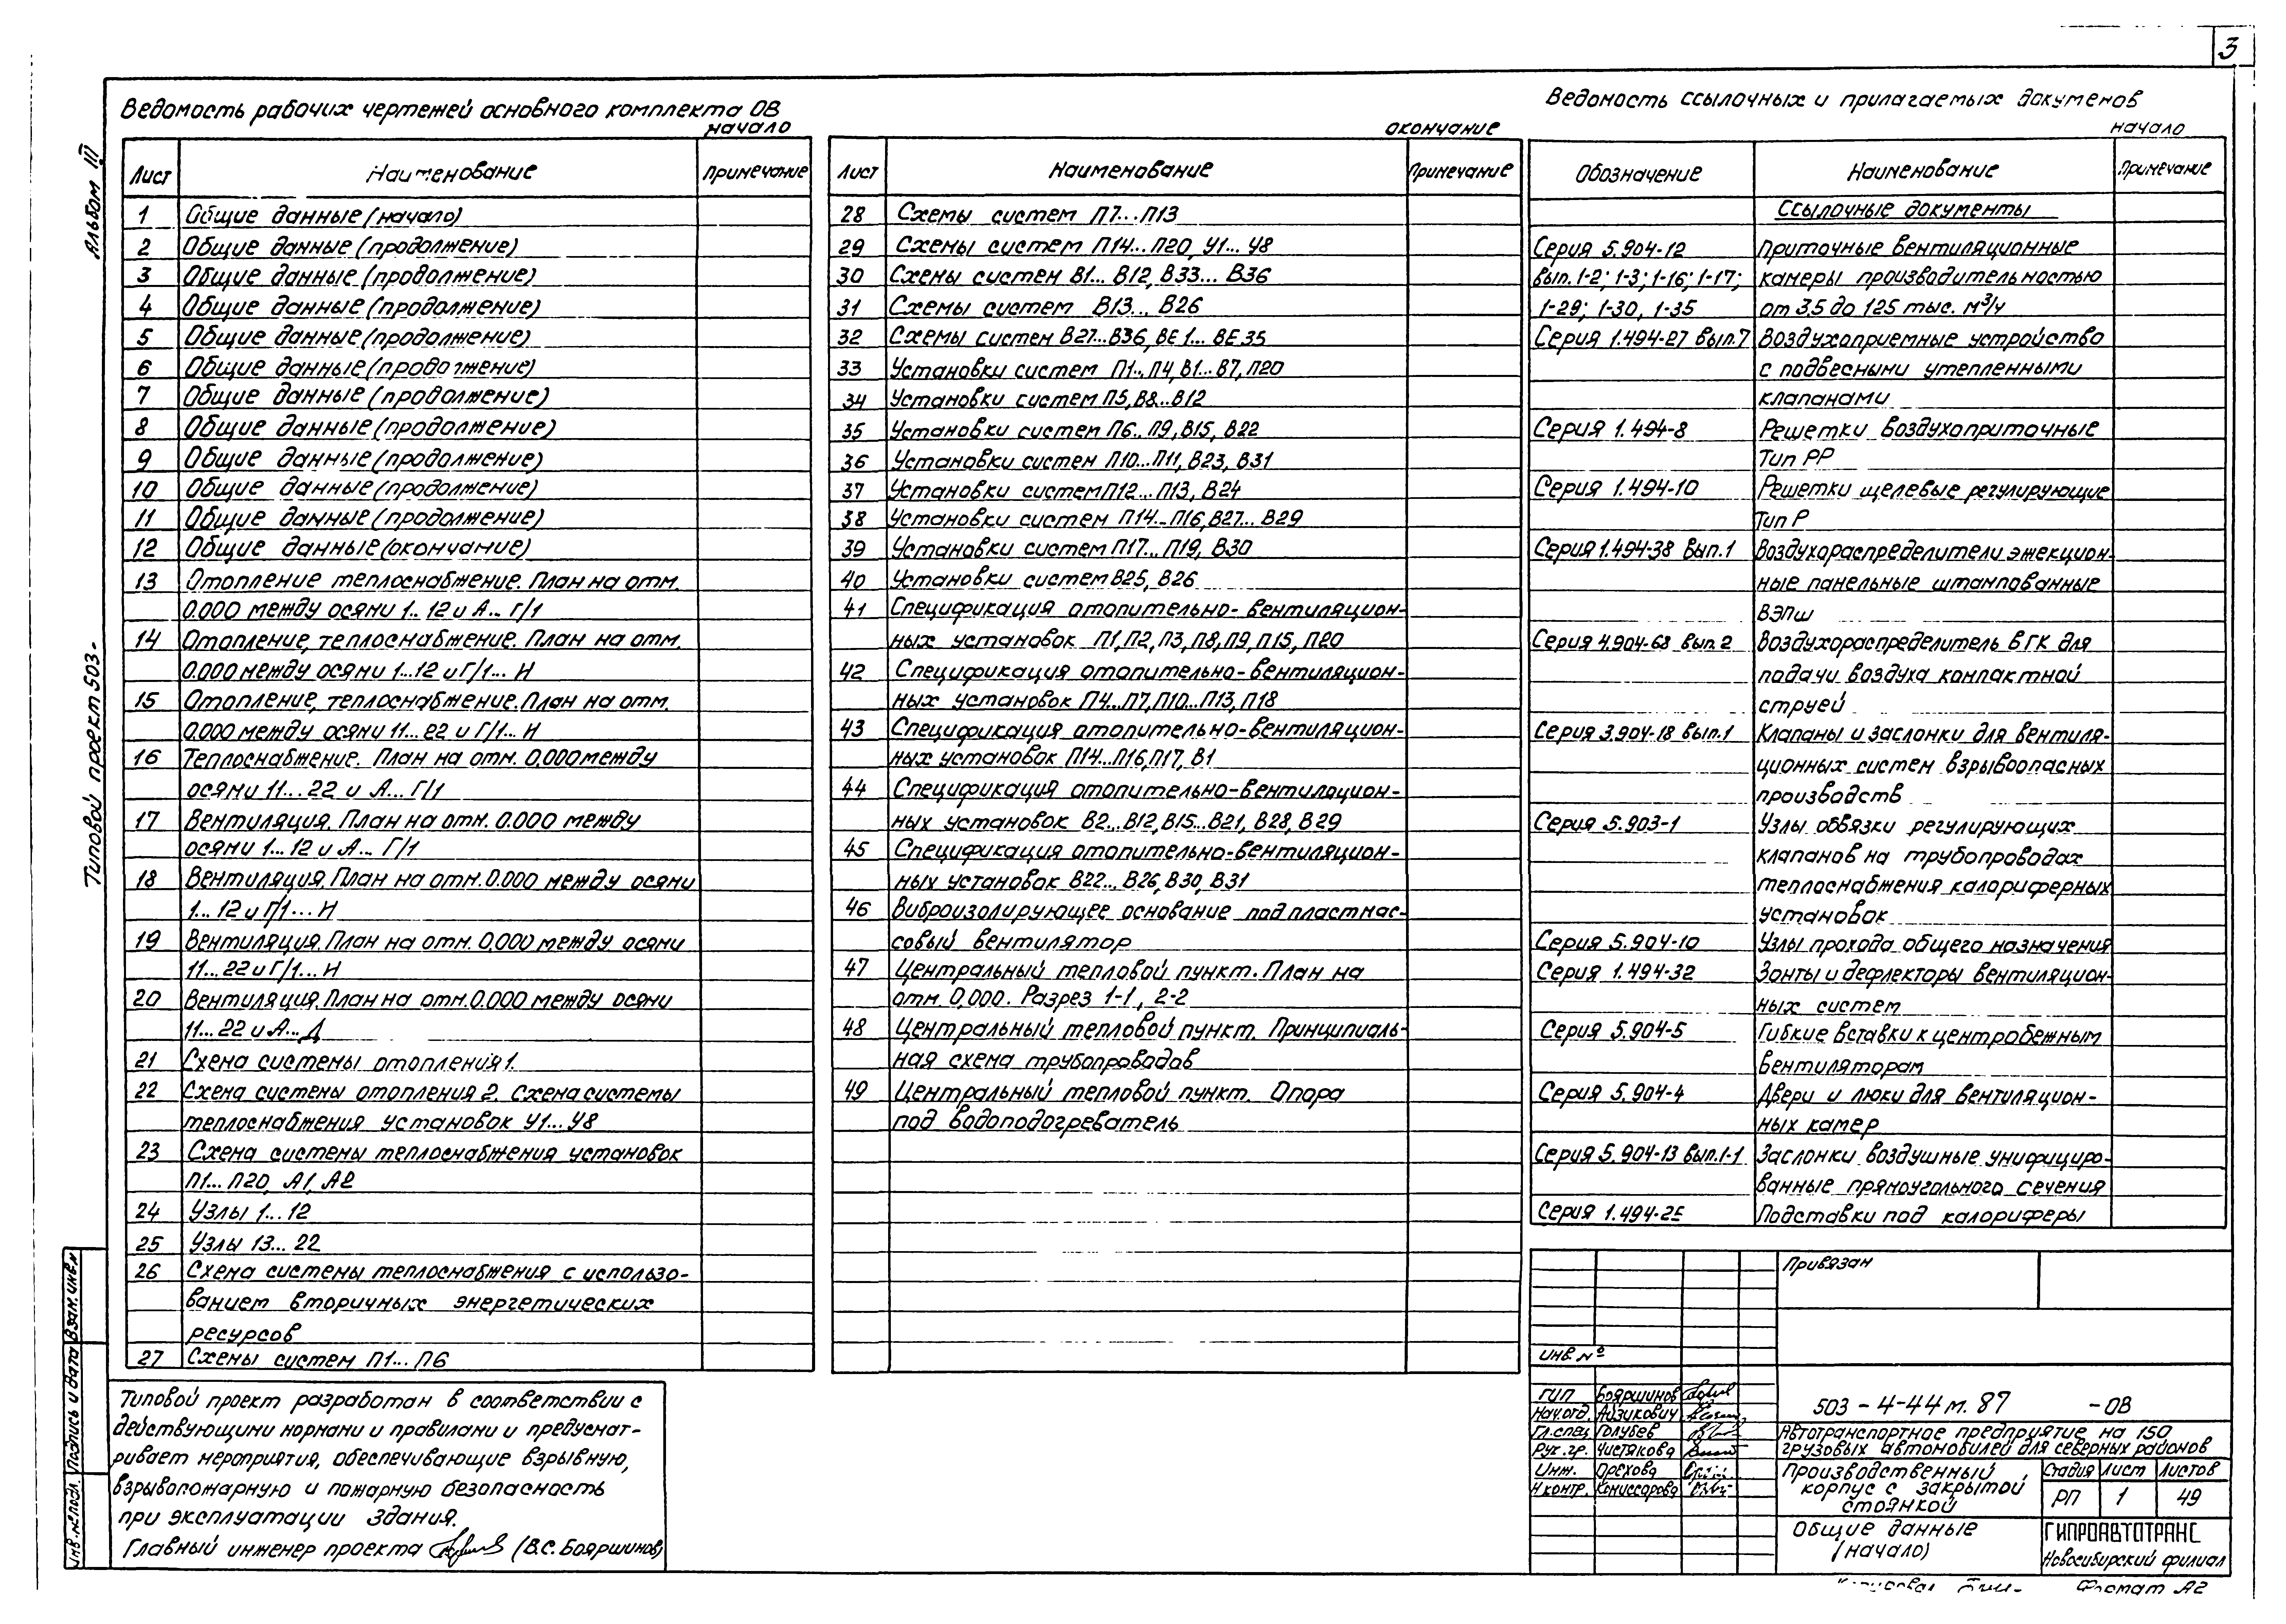 3
Альбом III
Типовой проект 503-
Ведомость рабочих чертежей основного комплекта ОВ
начало
Лист Наименование Примечание
1 Общие данные (начало)
2 Общие данные (продолжение)
3 Общие данные (продолжение)
4 Общие данные (продолжение)
5 Общие данные (продолжение)
6 Общие данные (продолжение)
7 Общие данные (продолжение)
8 Общие данные (продолжение)
9 Общие данные (продолжение)
10 Общие данные (продолжение)
11 Общие данные (продолжение)
12 Общие данные (окончание)
13 Отопление теплоснабжение. План на отм.
0.000 между осями 1...12 и А... Г/1
14 Отопление, теплоснабжение. План на отм.
0.000 между осями 1...12 и Г/1... И
15 Отопление, теплоснабжение. План на отм.
0.000 между осями 11...22 и Г/1... И
16 Теплоснабжение. План на отм. 0.000 между
осями 11...22 и А... Г/1
17 Вентиляция. План на отм. 0.000 между
осями 1...12 и А... Г/1
18 Вентиляция. План на отм. 0.000 между осями
1...12 и Г/1...И
19 Вентиляция. План на отм. 0,000 между осями
11...22 и Г/1...И
20 Вентиляция. План на отм. 0.000 между осями
11...22 и А...Д
21 Схема системы отопления 1.
22 Схема системы отопления 2. Схема системы
теплоснабжения установок У1...У8
23 Схема системы теплоснабжения установок
П1...П20, А1, А2
24 Узлы 1...12
25 Узлы 13...22
26 Схема системы теплоснабжения с использо-
ванием вторичных энергетических
ресурсов
27 Схемы систем П1...П6
окончание
Лист Наименование Примечание
28 Схемы систем П7...П13
29 Схемы систем П14...П20, У1...У8
30 Схемы систем В1...В12, В33...В36
31 Схемы систем В13...В26
32 Схемы систем В27...В36, ВЕ1...ВЕ35
33 Установки систем П1...П4, В1...В7, П20
34 Установки систем П5, В8...В12
35 Установки систем П6...П9, В15, В22
36 Установки систем П10...П11, В23, В31
37 Установки систем П12...П13, В24
38 Установки систем П14...П16, В27...В29
39 Установки систем П17...П19, В30
40 Установки систем В25, В26
41 Спецификация отопительно-вентиляцион-
ных установок П1, П2, П3, П8, П9, П15, П20
42 Спецификация отопительно-вентиляцион-
ных установок П4...П7, П10...П13, П18
43 Спецификация отопительно-вентиляцион-
ных установок П14...П16, П17, В1
44 Спецификация отопительно-вентиляцион-
ных установок В2...В12, В15...В21, В28, В29
45 Спецификация отопительно-вентиляцион-
ных установок В22...В26, В30, В31
46 Виброизолирующее основание под пластмас-
совый вентилятор
47 Центральный тепловой пункт. План на
отм. 0,000. Разрез 1-1, 2-2
48 Центральный тепловой пункт. Принципиаль-
ная схема трубопроводов
49 Центральный тепловой пункт. Опора
под водоподогреватель
Ведомость ссылочных и прилагаемых докуменов
начало
Обозначение Наименование Примечание
Ссылочные документы
Серия 5.904-12 Приточные вентиляционные
вып. 1-2; 1-3; 1-16; 1-17; камеры производительностью
1-29; 1-30, 1-35 от 3,5 до 125 тыс. м³/ч
Серия 1.494-27 вып.7 Воздухоприемные устройство
с подвесными утепленными
клапанами
Серия 1.494-8 Решетки воздухоприточные
Тип РР
Серия 1.494-10 Решетки щелевые регулирующие
Тип Р
Серия 1.494-38 Вып.1 Воздухораспределители эжекцион-
ные панельные штампованные
ВЭПш
Серия 4.904-68 вып.2 Воздухораспределитель ВГК для
подачи воздуха компактной
струей
Серия 3.904-18 вып.1 Клапаны и заслонки для вентиля-
ционных систем взрывоопасных
производств
Серия 5.903-1 Узлы обвязки регулирующих
клапанов на трубопроводах
теплоснабжения калориферных
установок
Серия 5.904-10 Узлы прохода общего назначения
Серия 1.494-32 Зонты и дефлекторы вентиляцион-
ных систем
Серия 5.904-5 Гибкие вставки к центробежным
вентиляторам
Серия 5.904-4 Двери и люки для вентиляцион-
ных камер
Серия 5.904-13 вып.1-1 Заслонки воздушные унифициро-
ванные прямоугольного сечения
Серия 1.494-25 Подставки под калориферы
Типовой проект разработан в соответствии с
действующими нормами и правилами и предусмат-
ривает мероприятия, обеспечивающие взрывную,
взрывопожарную и пожарную безопасность
при эксплуатации здания.
Главный инженер проекта (В.С. Бояршинов)
Взам. инв.н
Подпись и дата
Инв.№ подл.
Привязан
Инв. №
ГИП Бояршинов
Нач.отд. Айзикович
Гл.спец Голубев
Рук. гр. Чистякова
Инж. Орехова
Н.контр. Комиссарова
503-4-44м.87 -ОВ
Автотранспортное предприятие на 150
грузовых автомобилей для северных районов
Производственный
корпус с закрытой
стоянкой
Стадия Лист Листов
РП 1 49
Общие данные
(начало)
ГИПРОАВТОТРАНС
Новосибирский филиал
Формат А2